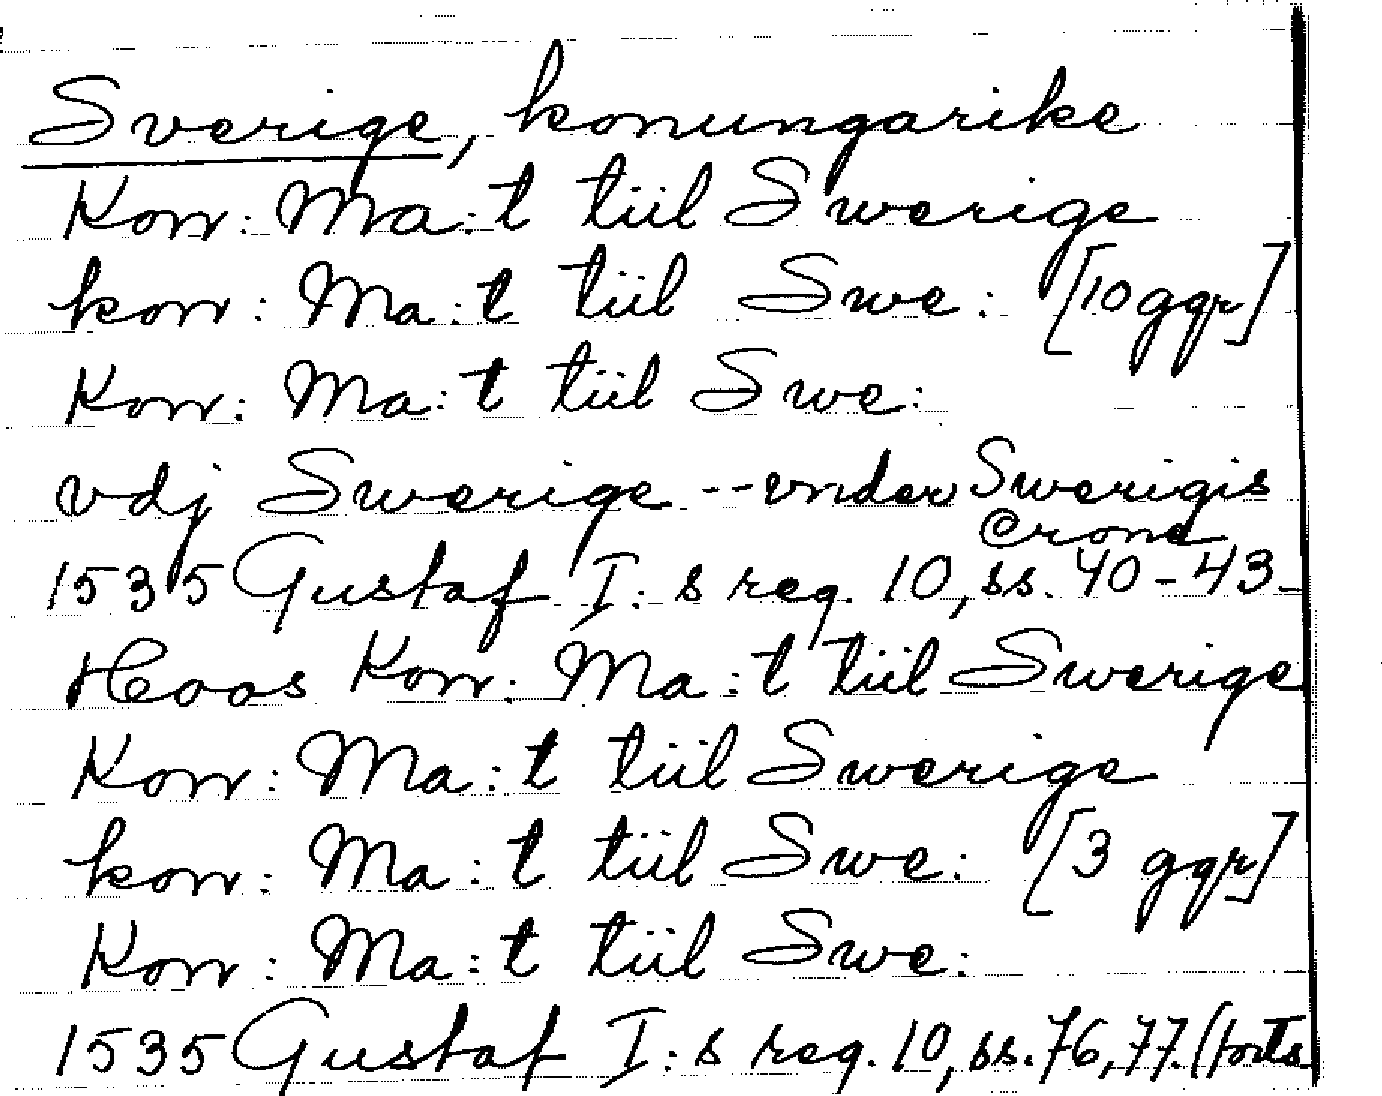 Sverige, konungarike
Konr: Ma:t tiil Swerige
konr: Ma:t tiil Swe: [10 ggr]
Konr: Ma:t tiil Swe:
vdj Swerige -- vnder Swerigis
Crone
1535 Gustaf I:s reg. 10, ss. 40-43.
Hoos Konr: Ma:t tiil Swerige
Konr: Ma:t tiil Swerige
konr: Ma:t tiil Swe: [3 ggr]
Konr: Ma:t tiil Swe:
1535 Gustaf I:s reg. 10, ss. 76, 77. (forts